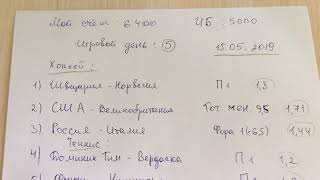 Мой счёт 6400 ЦБ . 5000
Игровой день : 5 15.05.2019
Хоккей :
1) Швейцария - Норвегия П1 1,3
2) США - Великобритания Тот. мен. 9,5 1,71
3) Россия - Италия Фора 1(-6.5) 1,44
Теннис :
4) Доминик Тим - Вердаско П1 1,2